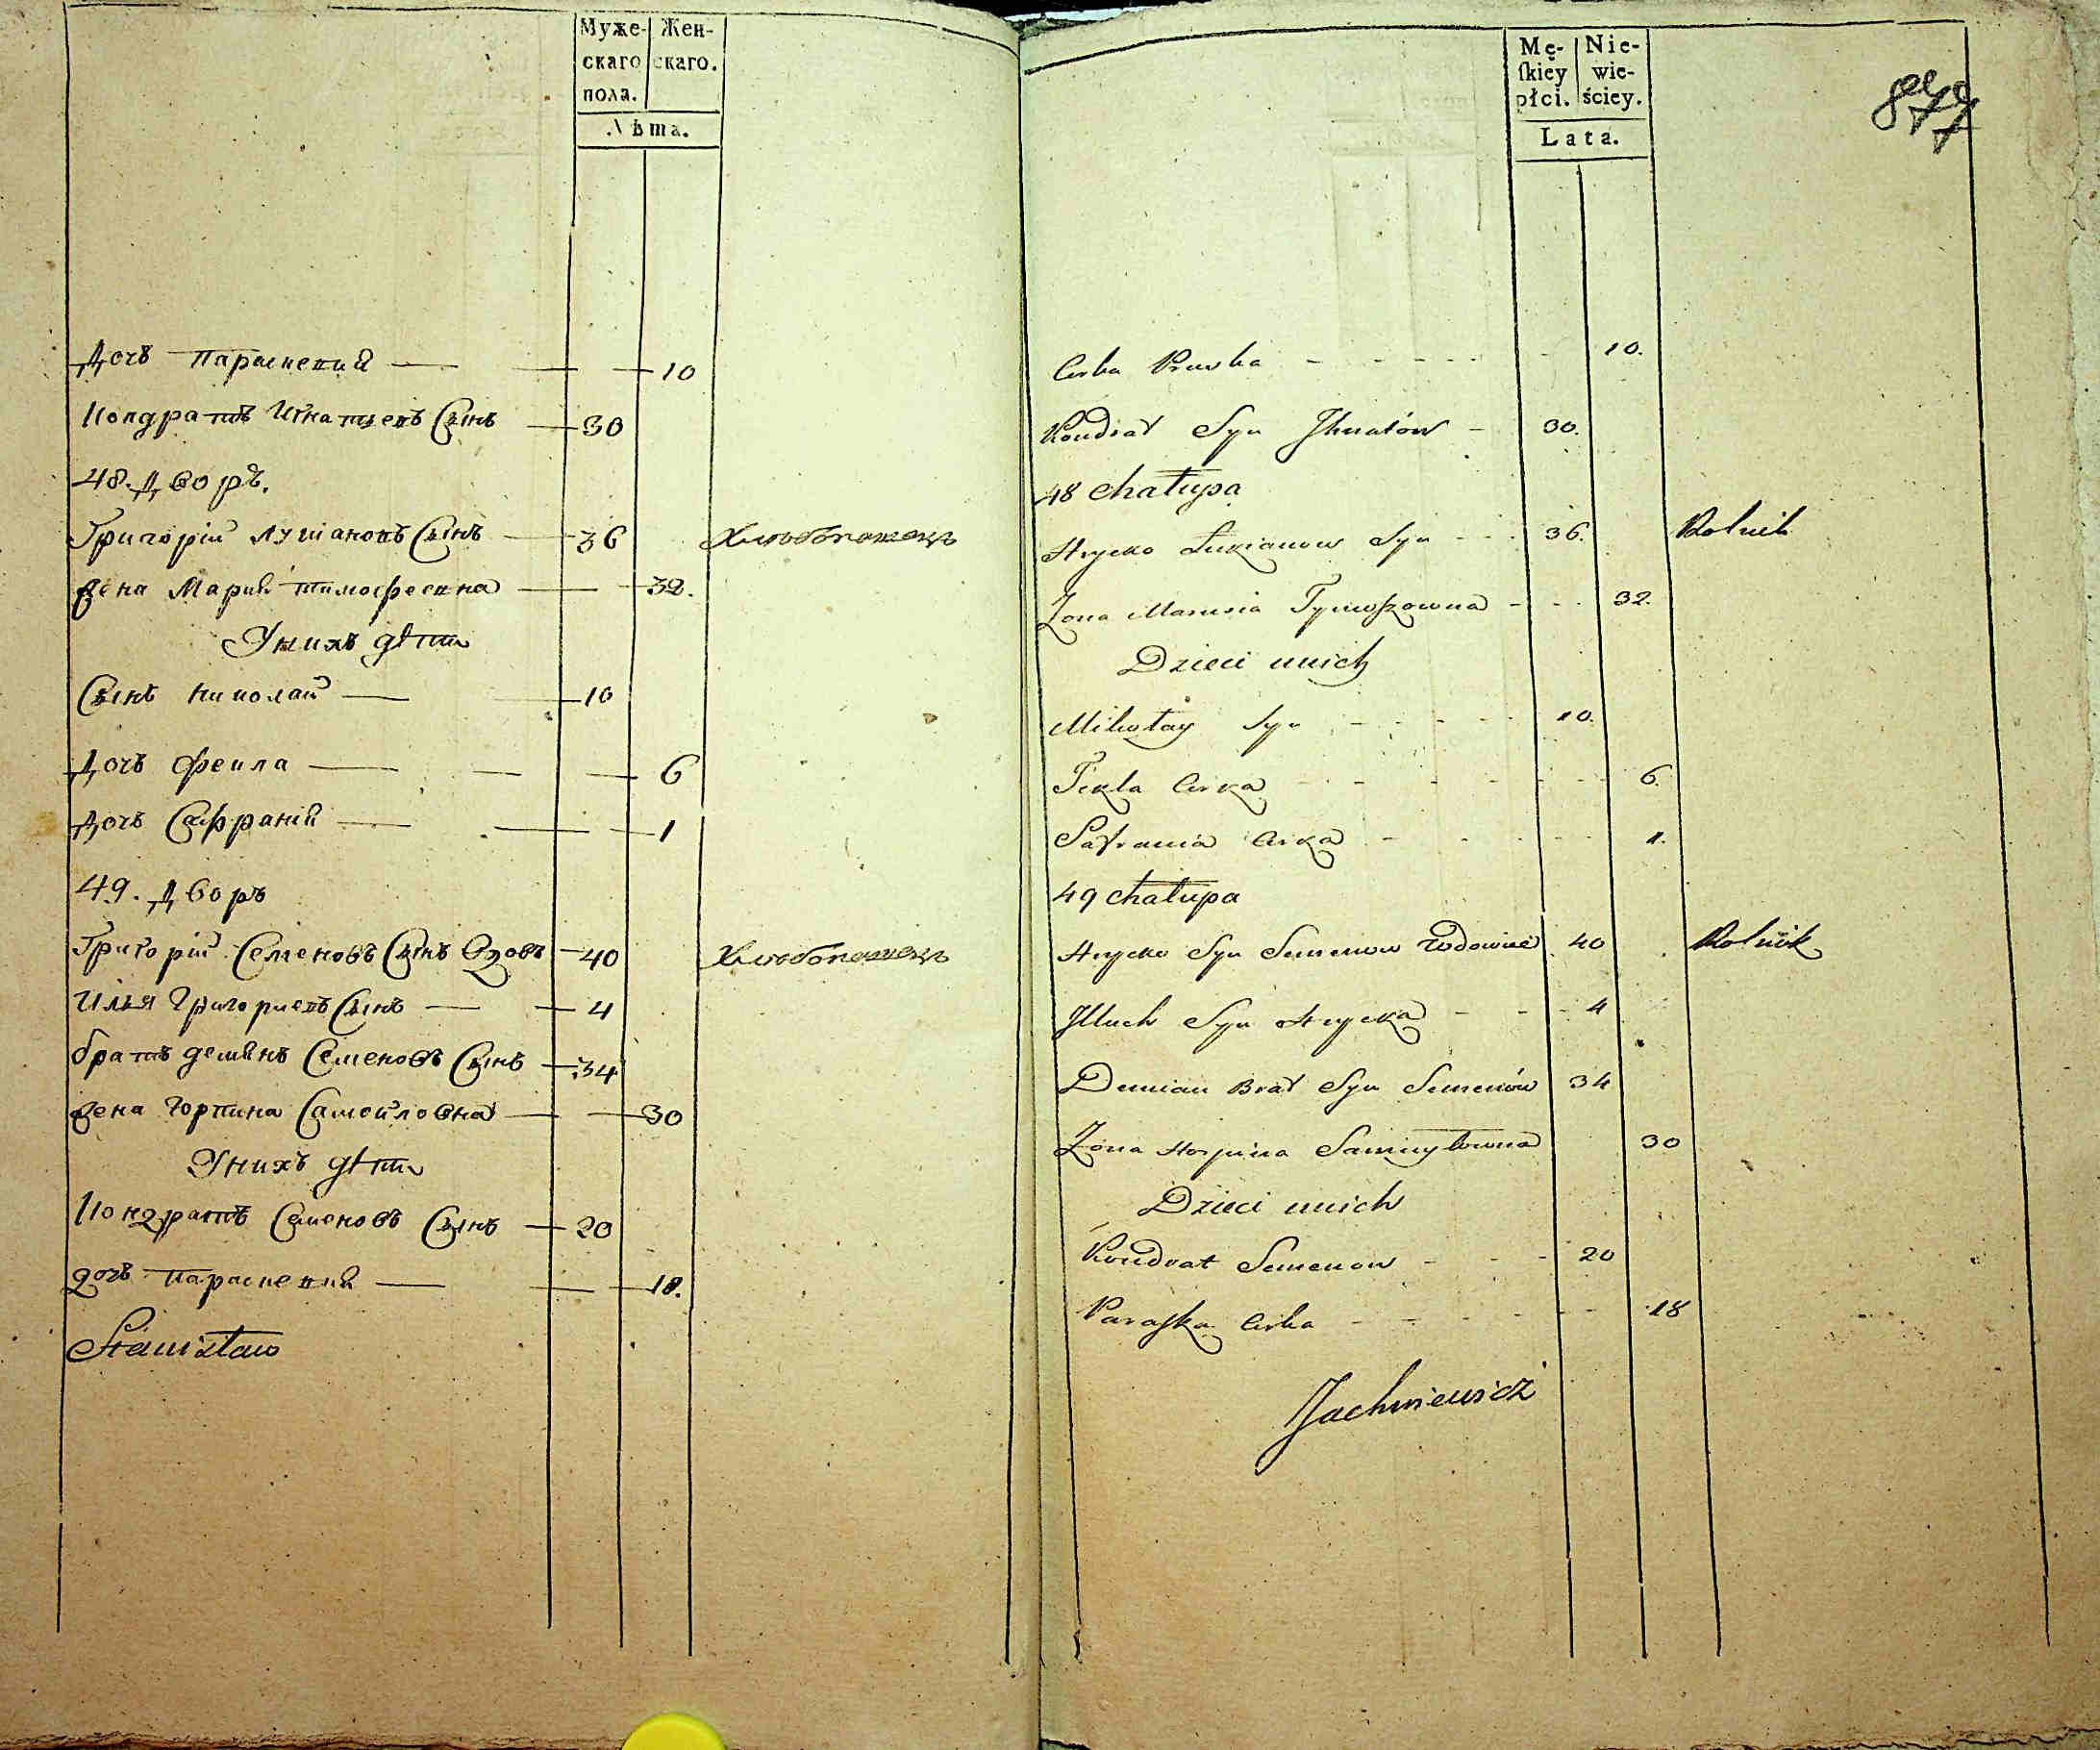 Муже- Жен-
скаго скаго.
пола.
Лѣта.
Дочь Параскевия 10
Кондратъ Игнатьевъ Сынъ 30
48. Дворъ.
Григорій Лукіановъ Сынъ 36 Хлѣбопашецъ
Жена Мария Тимофеевна 32.
У нихъ дѣти
Сынъ Николай 10
Дочь Фекла 6
Дочь Сафрания 1
49. Дворъ
Григорій Семеновъ Сынъ Вдовъ 40 Хлѣбопашецъ
Илья Григориевъ Сынъ 4
братъ демянъ Семеновъ Сынъ 34
Жена Горпина Самойловна 30
У нихъ дѣти
Кондратъ Семеновъ Сынъ 20
дочь Параскевия 18.
Stanisław
Mę- Nie-
ſkiéy wie-
płci. ściey.
Lata.
877
Corka Praska 10.
Kondrat Syn Jhnatów 30.
48 Chałupa
Hrycko Łukianow Syn 36. Rolnik
Żona Marusia Tymoszowna 32.
Dzieci u nich
Mikołay Syn 10.
Tekla Corka 6.
Safrania Corka 1.
49 Chałupa
Hrycko Syn Semenow Wdowiec 40 Rolnik
Jlluch Syn Hrycka 4
Demian Brat Syn Semenów 34
Żona Horpina Samuyłowna 30
Dzieci u nich
Kondrat Semenow 20
Paraſka Corka 18
Jachniewicz